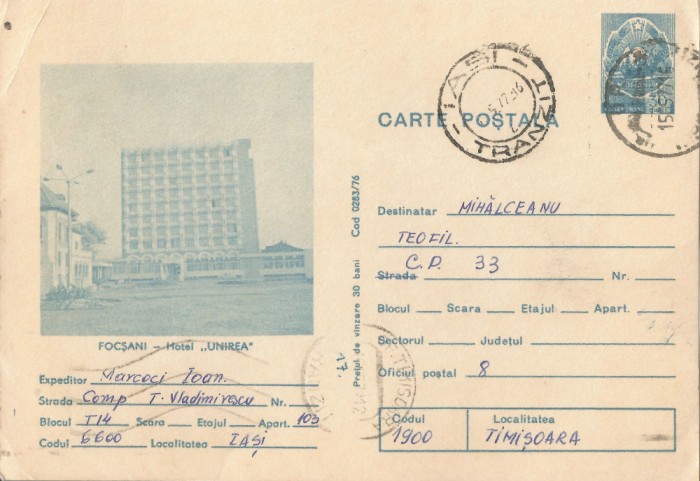 IAȘI - TRANZIT
CARTE POȘTALĂ
FOCȘANI – Hotel „UNIREA”
Expeditor Marcoci Ioan.
Strada Comp T. Vladimirescu Nr.
Blocul T14 Scara Etajul Apart. 103
Codul 6600 Localitatea IAȘI
Prețul de vînzare 30 bani Cod 0283/76
Destinatar MIHĂLCEANU
TEOFIL.
C.P. 33
Strada Nr.
Blocul Scara Etajul Apart.
Sectorul Județul
Oficiul poștal 8
Codul Localitatea
1900 TIMIȘOARA